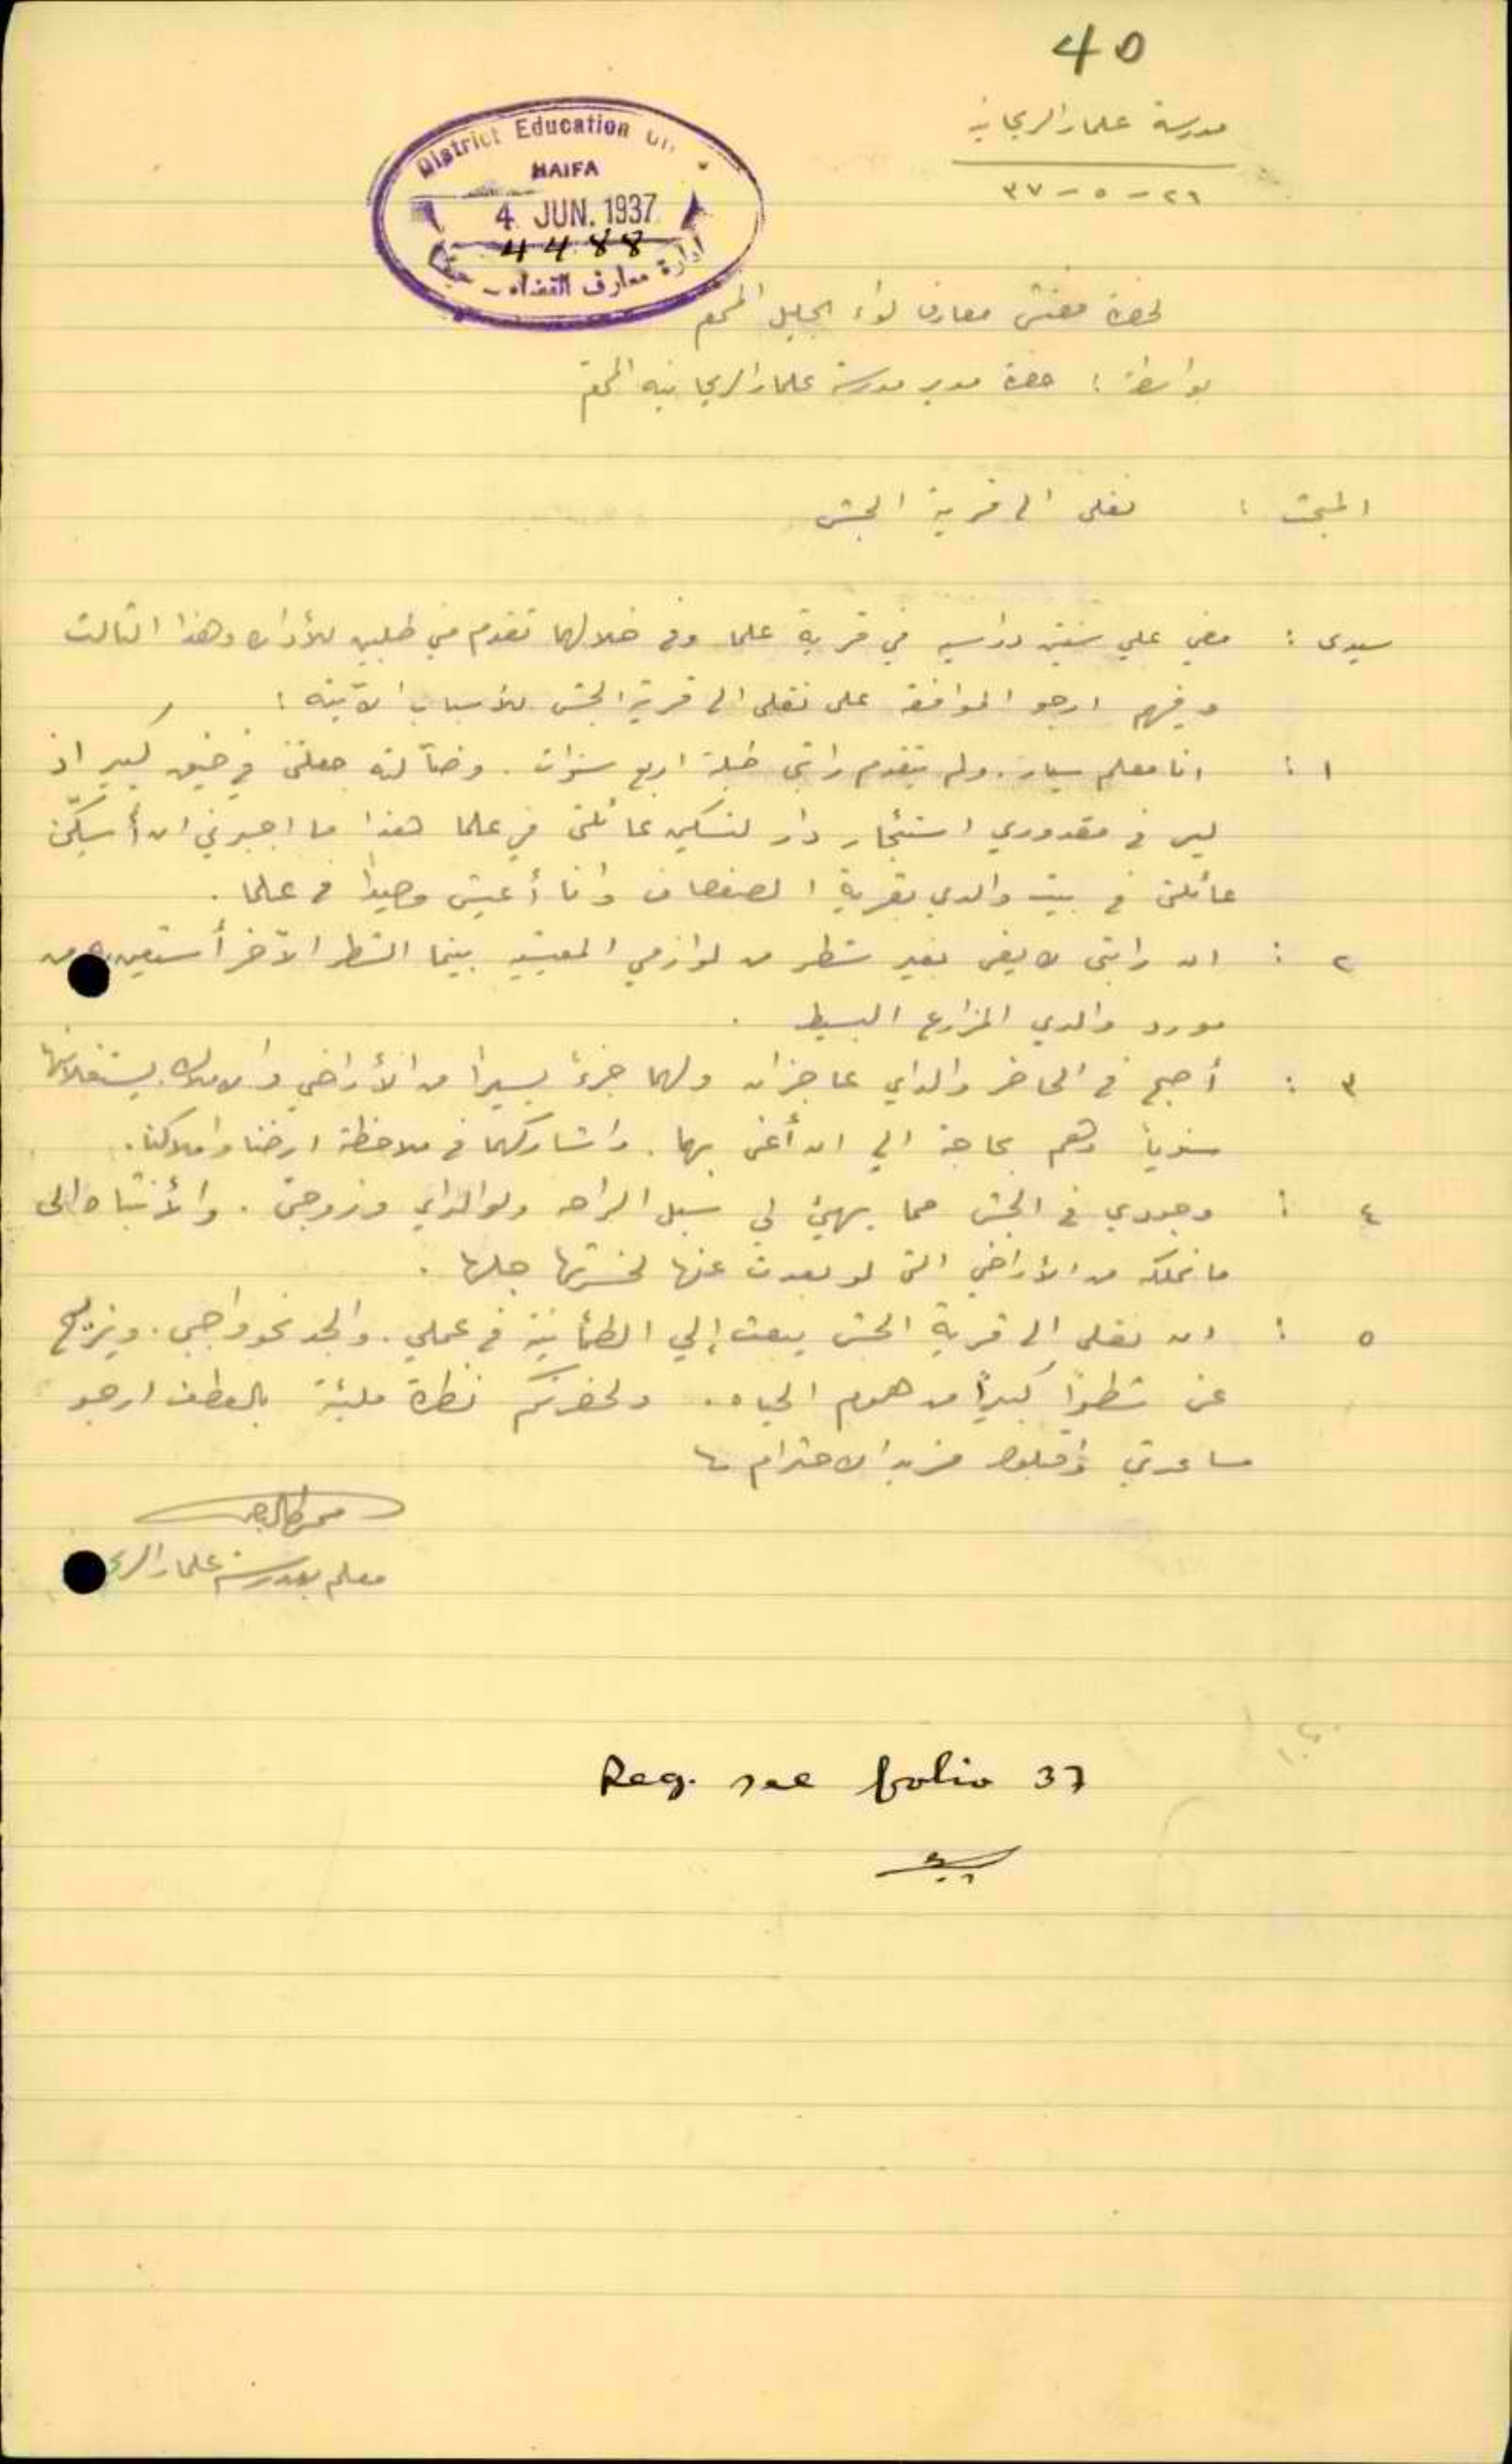 40
مدرسة علما والريحانيه
٢٦ - ٥ - ٣٧
District Education
HAIFA
4 JUN. 1937
4488
ادارة معارف القضاء - حيفا
لحضرة مفتش معارف لواء الجليل المحترم
بواسطة : حضرة مدير مدرسة علما والريحانيه المحترم
المبحث : نقلي الى قرية الجش
سيدي : مضى علي سنتين دراسيه في قرية علما وفي خلالهما تقدم مني طلبين للأداره وهذا الثالث
وفيهم ارجو الموافقه على نقلي الى قرية الجش للأسباب الآتيه :
١ : انا معلم سيار . ولم يتقدم راتبي طيلة اربع سنوات . وضآلته جعلتني في ضيق كبير اذ
ليس في مقدوري استئجار دار لتسكين عائلتي في علما هذا ما اجبرني ان أسكّن
عائلتي في بيت والدي بقرية الصفصاف وانا أعيش وحيداً في علما .
٢ : ان راتبي لا يفي بغير شطر من لوازمي المعيشيه بينما الشطر الآخر أستعين من
مورد والدي المزارع البسيط .
٣ : أصبح في الحاضر والداي عاجزان ولهما جزءً يسيراً من الأراضي والاملاك يستغلانها
سنوياً وهم بحاجة الي ان أعني بهما . واشاركهما في ملاحظة ارضنا واملاكنا .
٤ : وجودي في الجش مما يهيئ لي سبل الراحه ولوالداي وزوجتي . والأنتباه الى
ما نملكه من الأراضي التي لو بعدت عنها لخسرتها جلها .
٥ : ان نقلي الى قرية الجش يبعث إلي الطمأنينة في عملي . والجد نحو واجبي . ويزيح
عني شطراً كبيراً من هموم الحياه . ولحضرتكم نظرة مليئة بالعطف ارجو
مساعدتي واقبلوا مزيد الاحترام
معلم بمدرسة علما والريحـ
Reg. see folio 37